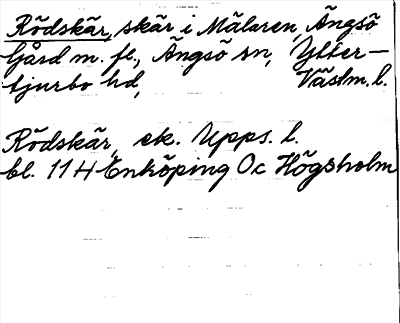 Rödskär, skär i Mälaren, Ängsö
Gård m. fl., Ängsö sn, Ytter-
tjurbo hd, Västm. l.
Rödskär, ek. Upps. l.
bl. 114 Enköping Oc Högsholm